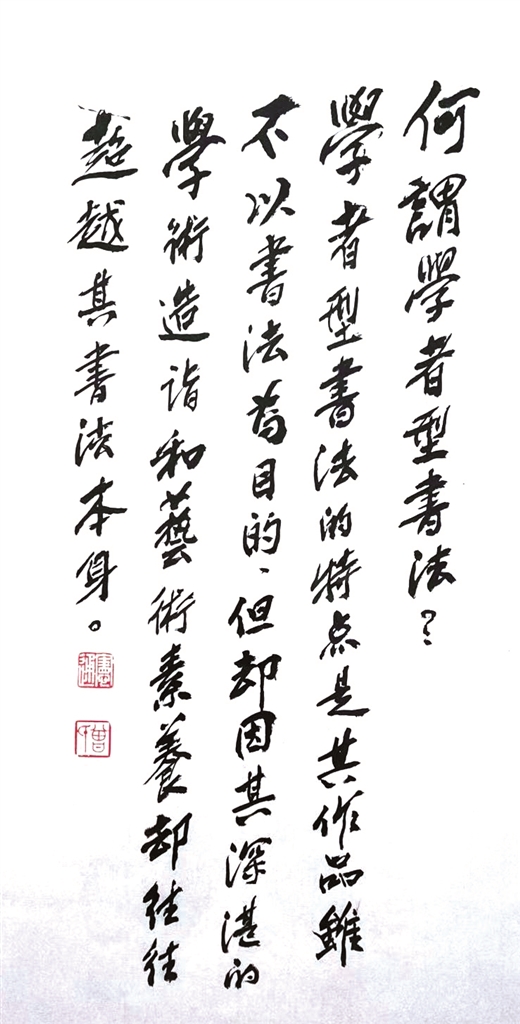 何謂學者型書法？
學者型書法的特点是其作品雖
不以書法為目的、但却因其深湛的
學術造诣和藝術素養却往往
超越其書法本身。